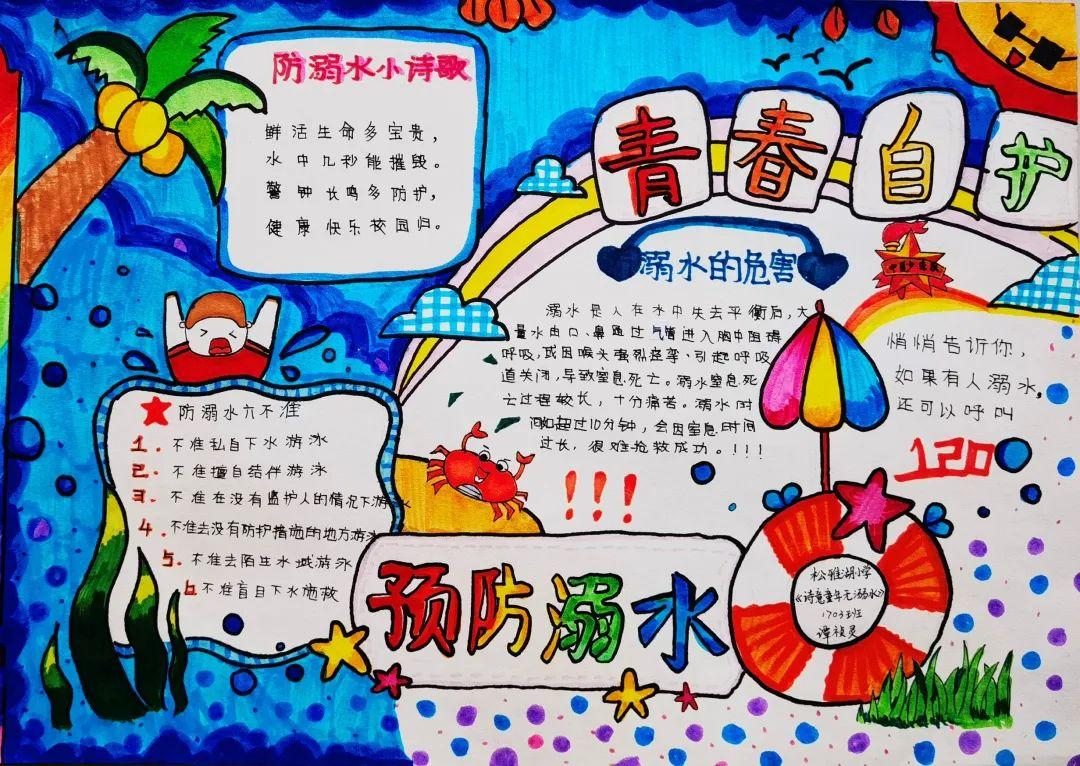 防溺水小诗歌
鲜活生命多宝贵，
水中几秒能摧毁。
警钟长鸣多防护，
健康快乐校园归。
青春自护
溺水的危害
溺水是人在水中失去平衡后，大
量水由口、鼻跑过气管进入胸中阻碍
呼吸，或因喉头强烈痉挛、引起呼吸
道关闭，导致窒息死亡。溺水窒息死
亡过程较长，十分痛苦。溺水时
间如超过10分钟，会因窒息时间
过长，很难抢救成功。!!!
!!!
悄悄告诉你，
如果有人溺水，
还可以呼叫
120
防溺水六不准
1. 不准私自下水游泳
2. 不准擅自结伴游泳
3. 不准在没有监护人的情况下游泳
4. 不准去没有防护措施的地方游泳
5. 不准去陌生水域游泳
6 不准盲目下水施救
预防溺水
松雅湖小学
《诗意童年无溺水》
1703班
谭祯灵